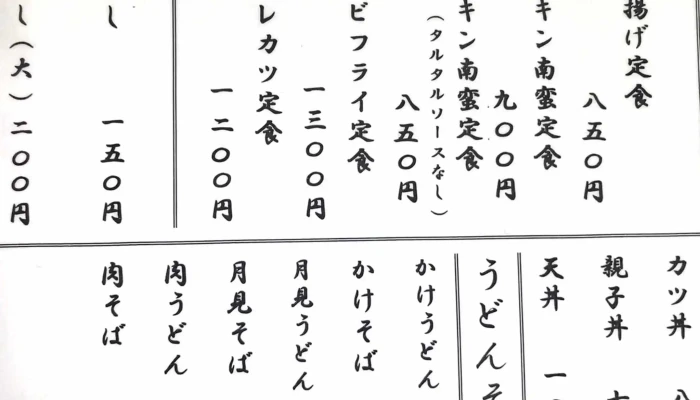 揚げ定食
八五〇円
キン南蛮定食
九〇〇円
キン南蛮定食
（タルタルソースなし）
八五〇円
ビフライ定食
一三〇〇円
レカツ定食
一二〇〇円
し
一五〇円
し（大）二〇〇円
カツ丼 八
親子丼 七
天丼 一
うどんそ
かけうどん
かけそば
月見うどん
月見そば
肉うどん
肉そば